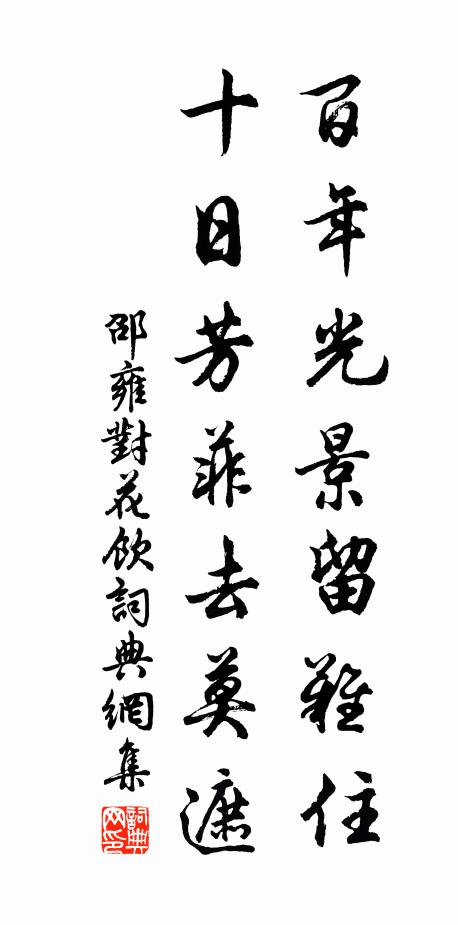 百年光景留難住
十日芳菲去莫遮
邵雍對花飲詞典網集
詞典网印